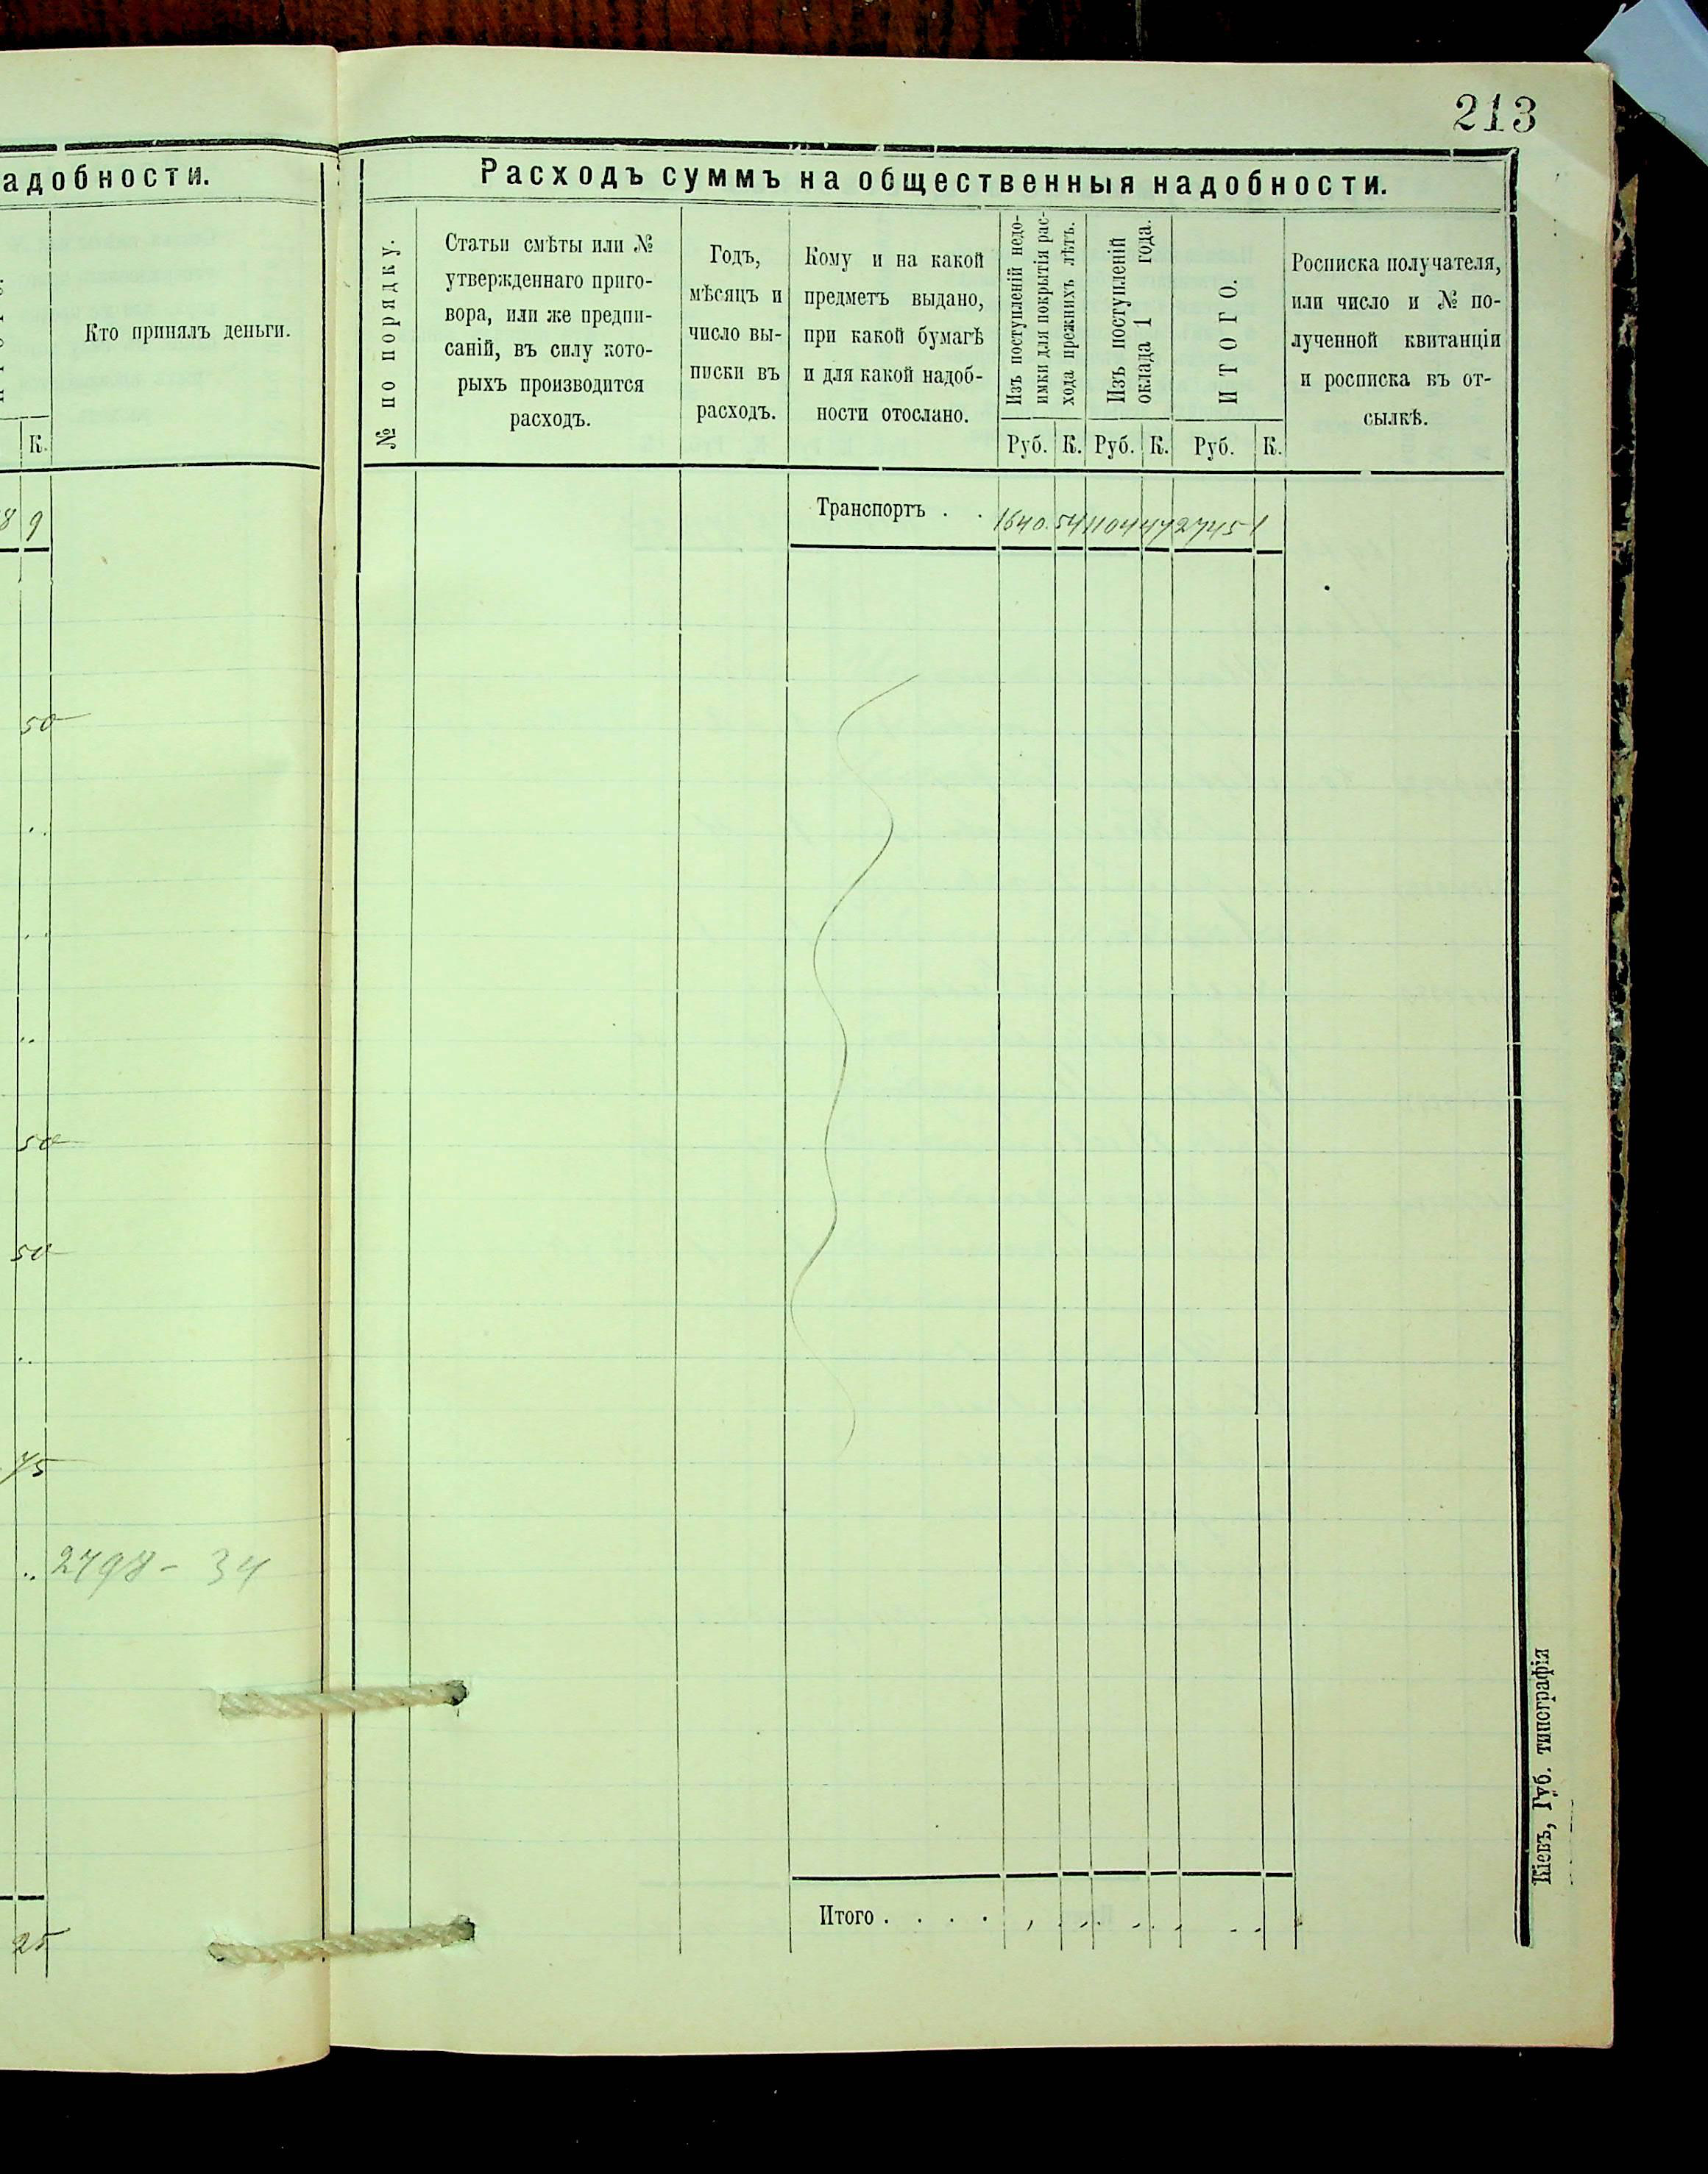 213
адобности.
К.
Кто принялъ деньги.
9
50
50
50
75
2798 - 34
25
Расходъ суммъ на общественныя надобности.
№ по порядку.
Статьи смѣты или №
утвержденнаго приго-
вора, или же предпи-
саній, въ силу кото-
рыхъ производится
расходъ.
Годъ,
мѣсяцъ и
число вы-
писки въ
расходъ.
Кому и на какой
предметъ выдано,
при какой бумагѣ
и для какой надоб-
ности отослано.
Изъ поступленій недо-
имки для покрытія рас-
хода прежнихъ лѣтъ.
Изъ поступленій
оклада 1 года.
ИТОГО.
Росписка получателя,
или число и № по-
лученной квитанціи
и росписка въ от-
сылкѣ.
Руб. К. Руб. К. Руб. К.
Транспортъ . . 1640. 54 1104 47 2745 1
Итого . . . .
Кіевъ, Губ. типографія